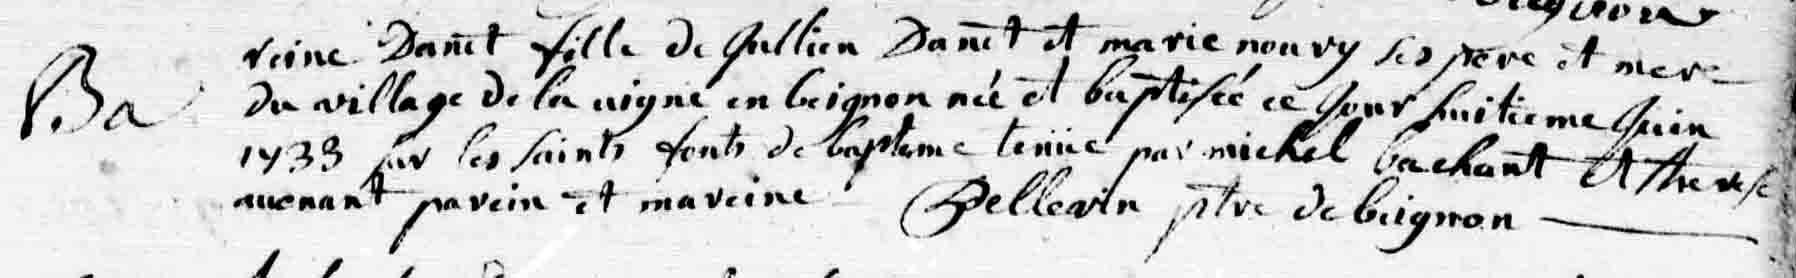 Ba
reine Danet fille de Jullien Danet et marie nouvy ses pere et mere
du village de la vigne en beignon née et baptisée ce jour huitieme juin
1733 sur les saints fonts de bapteme tenüe par michel bachant et therese
auenant parein et mareine Pellerin ptre de beignon